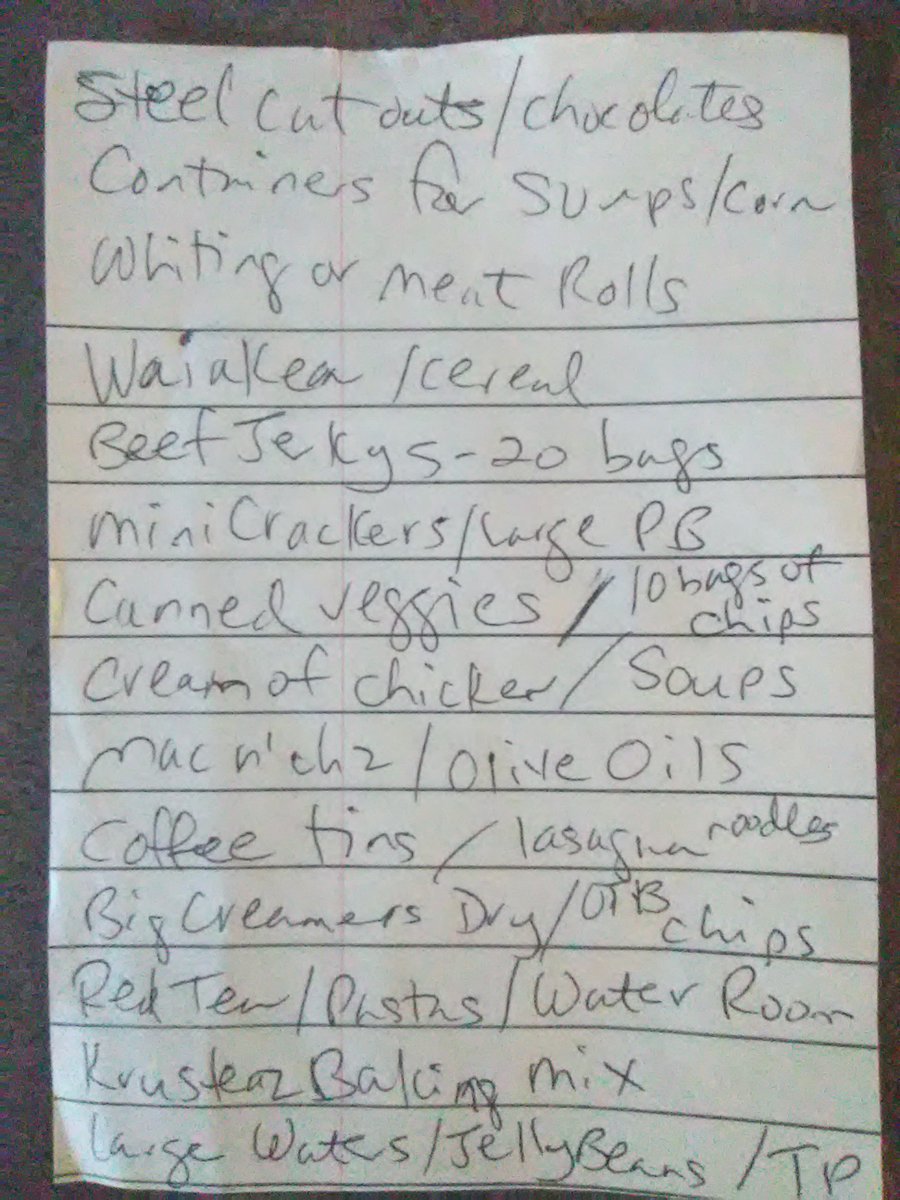 Steel cut outs/chocolates
Containers for Sumps/Corn
Whiting or meat Rolls
Waiakea /cereal
Beef Jerkys-20 bags
mini Crackers/Large PB
Canned veggies / 10 bags of chips
Cream of chicken/ Soups
Mac n' chz / Olive Oils
Coffee tins / lasagna noodles
Big Creamers Dry/OTB chips
Red Tea/Pastas/Water Room
Krusteaz Baking mix
Large Waters/JellyBeans / TP